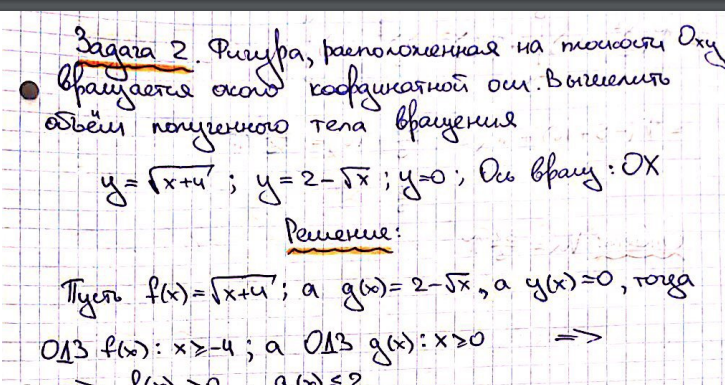 Задача 2. Фигура, расположенная на плоскости Oxy
вращается около координатной оси. Вычислить
объём полученного тела вращения
y=√(x+4); y=2-√x; y=0; Ось вращ: OX
Решение:
Пусть f(x)=√(x+4); а g(x)=2-√x, а y(x)=0, тогда
ОДЗ f(x): x≥-4; а ОДЗ g(x): x≥0 =>
=> f(x)≥0 g(x)≤2